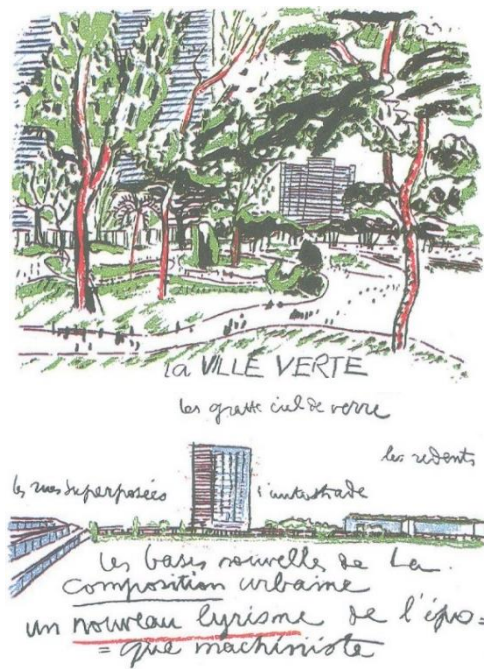 la VILLE VERTE
les gratte ciel de verre
les redents
les rues superposées
l'autostrade
les bases nouvelles de la
composition urbaine
un nouveau lyrisme de l'épo=
=que machiniste